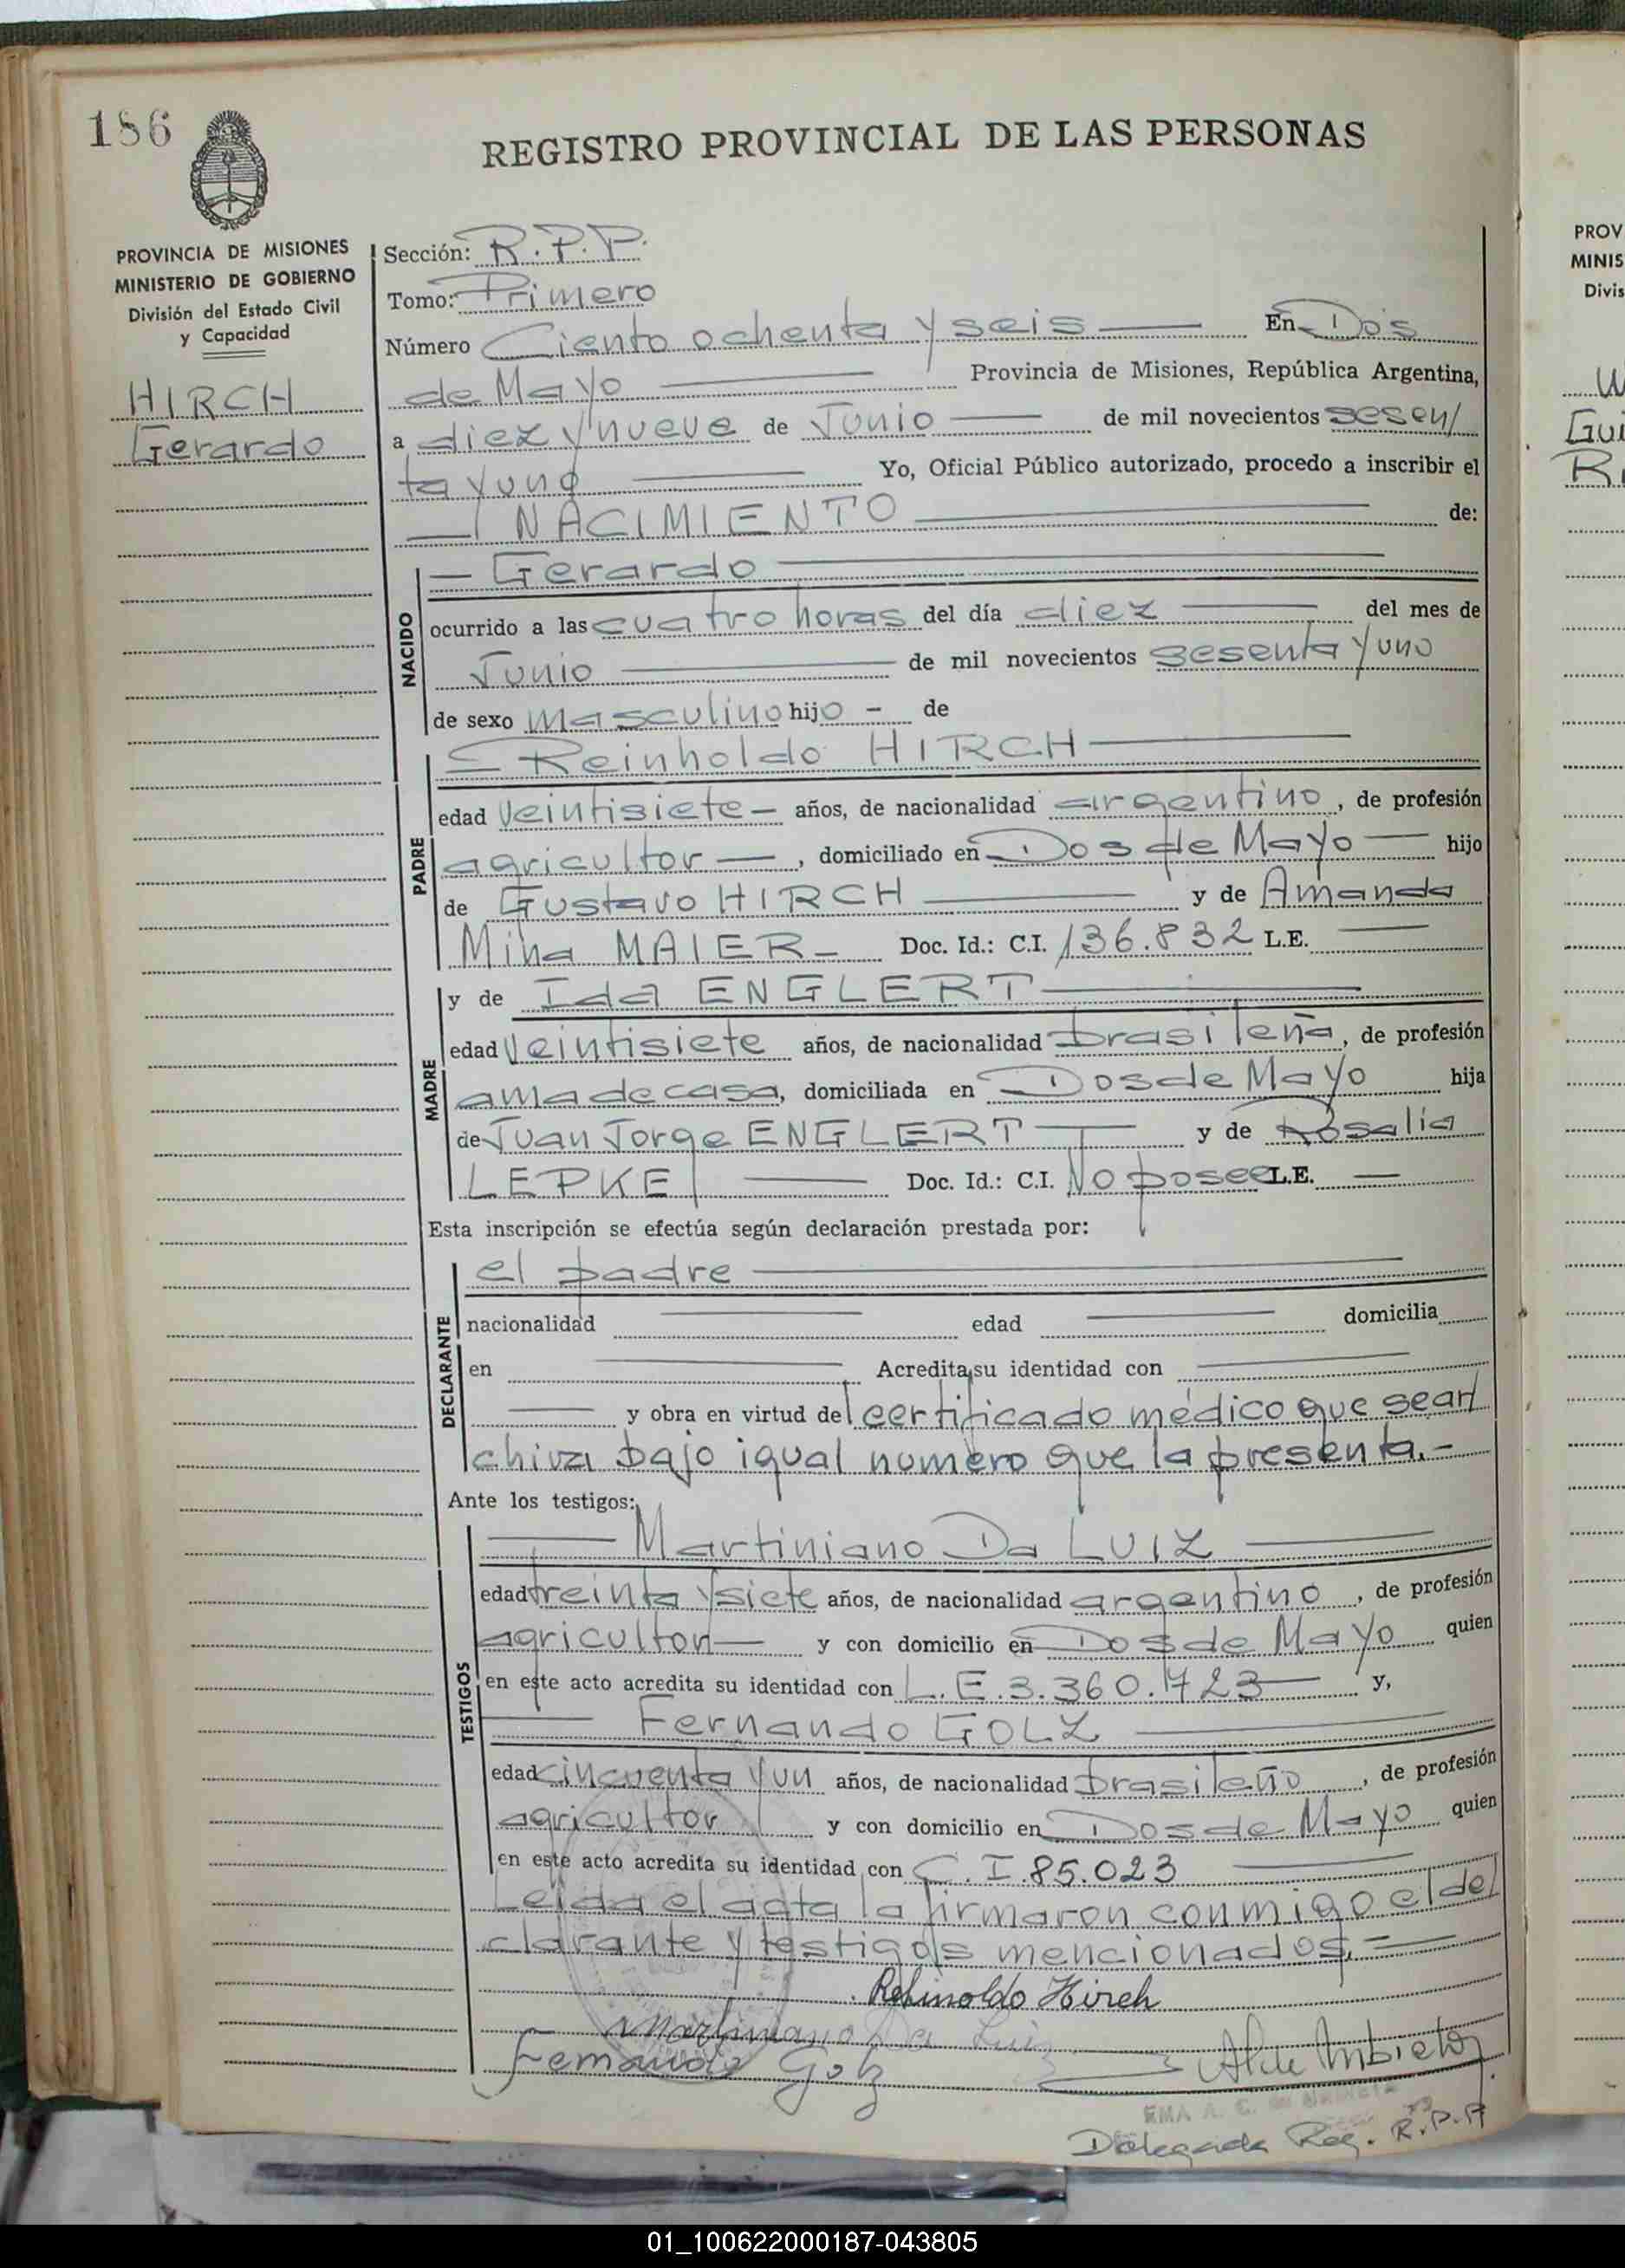 186
REGISTRO PROVINCIAL DE LAS PERSONAS
PROVINCIA DE MISIONES
MINISTERIO DE GOBIERNO
División del Estado Civil
y Capacidad
HIRCH
Gerardo
Sección: R.P.P.
Tomo: Primero
Número Ciento ochenta y seis En Dos
de Mayo Provincia de Misiones, República Argentina,
a diez y nueve de Junio de mil novecientos sesen/
ta y uno Yo, Oficial Público autorizado, procedo a inscribir el
NACIMIENTO de:
NACIDO
Gerardo
ocurrido a las cuatro horas del día diez del mes de
Junio de mil novecientos sesenta y uno
de sexo masculino hijo - de
PADRE
Reinholdo HIRCH
edad veintisiete - años, de nacionalidad argentino, de profesión
agricultor, domiciliado en Dos de Mayo hijo
de Gustavo HIRCH y de Amanda
Mina MAIER - Doc. Id.: C.I. 136.832 L.E.
MADRE
y de Ida ENGLERT
edad veintisiete años, de nacionalidad brasileña, de profesión
ama de casa, domiciliada en Dos de Mayo hija
de Juan Jorge ENGLERT y de Rosalia
LEPKE Doc. Id.: C.I. No posee L.E.
Esta inscripción se efectúa según declaración prestada por:
DECLARANTE
el padre
nacionalidad edad domicilia
en Acredita su identidad con
y obra en virtud del certificado médico que se ar/
chiva bajo igual numero que la presenta.-
Ante los testigos:
TESTIGOS
Martiniano Da LUIZ
edad treinta y siete años, de nacionalidad argentino, de profesión
agricultor y con domicilio en Dos de Mayo quien
en este acto acredita su identidad con L.E. 3.360.723 y,
Fernando GOLZ
edad cincuenta y un años, de nacionalidad brasileño, de profesión
agricultor y con domicilio en Dos de Mayo quien
en este acto acredita su identidad con C.I. 85.023
Leida el acta la firmaron conmigo el de/
clarante y testigos mencionados.-
Rehinoldo Hirch
Martiniano Da Luiz
Fernando Golz
Delegada Reg. R.P.P.
PROV
MINIS
Divis
Gui
01_100622000187-043805